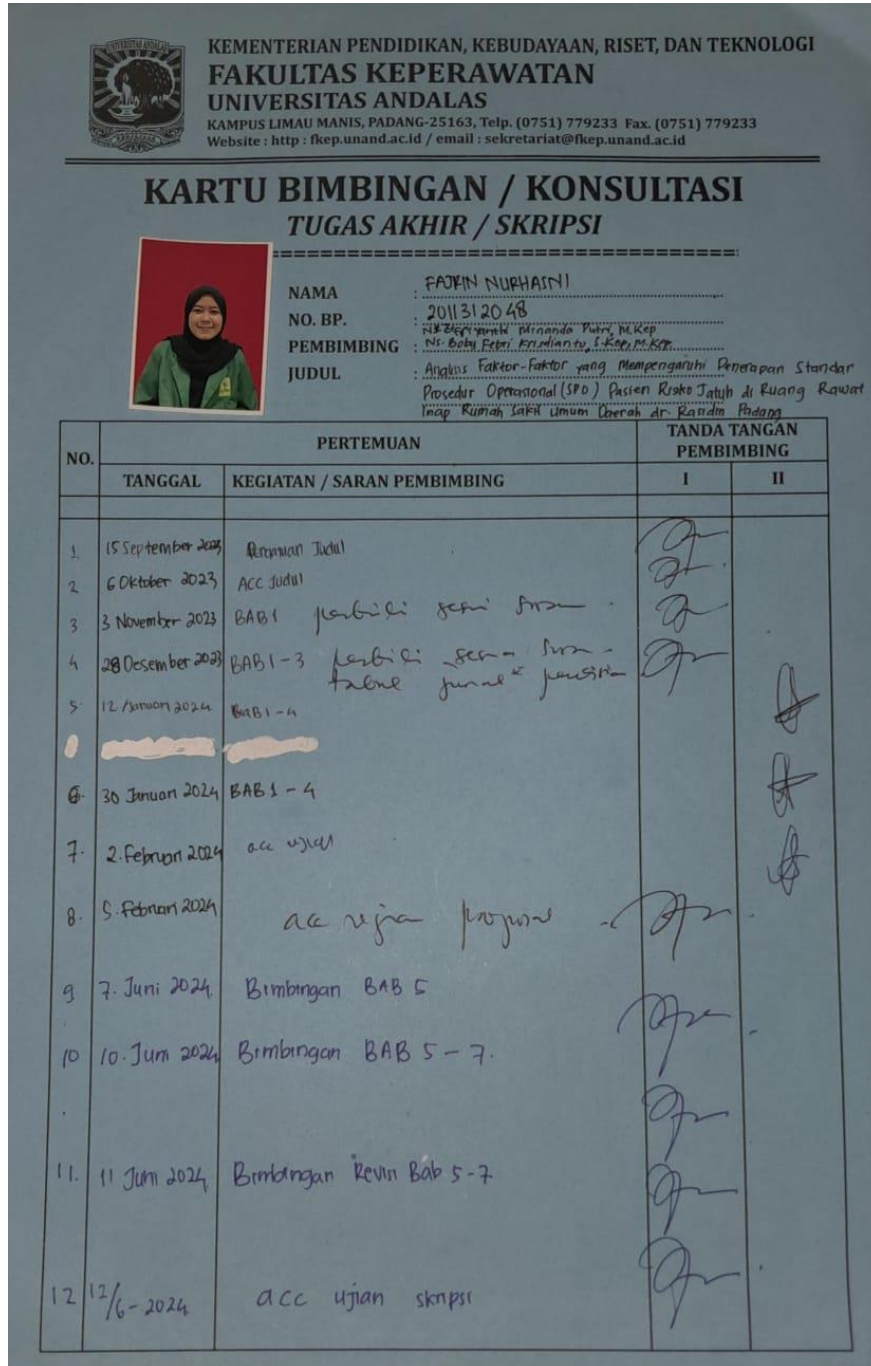 UNIVERSITAS ANDALAS
KEMENTERIAN PENDIDIKAN, KEBUDAYAAN, RISET, DAN TEKNOLOGI
FAKULTAS KEPERAWATAN
UNIVERSITAS ANDALAS
KAMPUS LIMAU MANIS, PADANG-25163, Telp. (0751) 779233 Fax. (0751) 779233
Website : http : fkep.unand.ac.id / email : sekretariat@fkep.unand.ac.id
KARTU BIMBINGAN / KONSULTASI
TUGAS AKHIR / SKRIPSI
NAMA : FAJRIN NURHASNI
NO. BP. : 2011312048
PEMBIMBING : Minanda Putri, M.Kep
Ns. Boby Febri Krisdianto, S.Kep, M.Kep
JUDUL : Analisis Faktor-Faktor yang Mempengaruhi Penerapan Standar
Prosedur Operasional (SPO) Pasien Risiko Jatuh di Ruang Rawat
Inap Rumah Sakit Umum Daerah dr. Rasidin Padang
NO. PERTEMUAN TANDA TANGAN PEMBIMBING
TANGGAL KEGIATAN / SARAN PEMBIMBING I II
1 15 September 2023 Judul
2 6 Oktober 2023 ACC Judul
3 3 November 2023 BAB 1
4 28 Desember 2023 BAB 1-3
5. 12 Januari 2024 BAB 1-4
6. 30 Januari 2024 BAB 1-4
7. 2. Februari 2024 acc ujian
8. 5. Februari 2024 acc ujian proposal
9 7. Juni 2024 Bimbingan BAB 5
10 10. Juni 2024 Bimbingan BAB 5-7.
11. 11 Juni 2024 Bimbingan Revisi Bab 5-7
12 12/6-2024 acc ujian skripsi